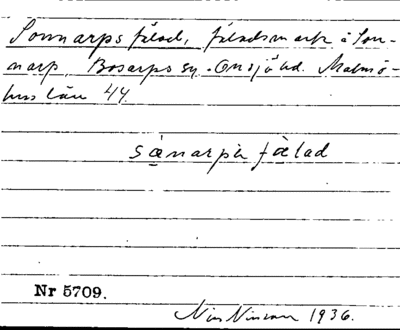 Sonnarps fälad, fäladsmark å Son-
narp, Bosarps sn. Onsjö hd. Malmö-
hus län 44.
sånarps fälad
Nr 5709.
Nils Nilsson 1936.